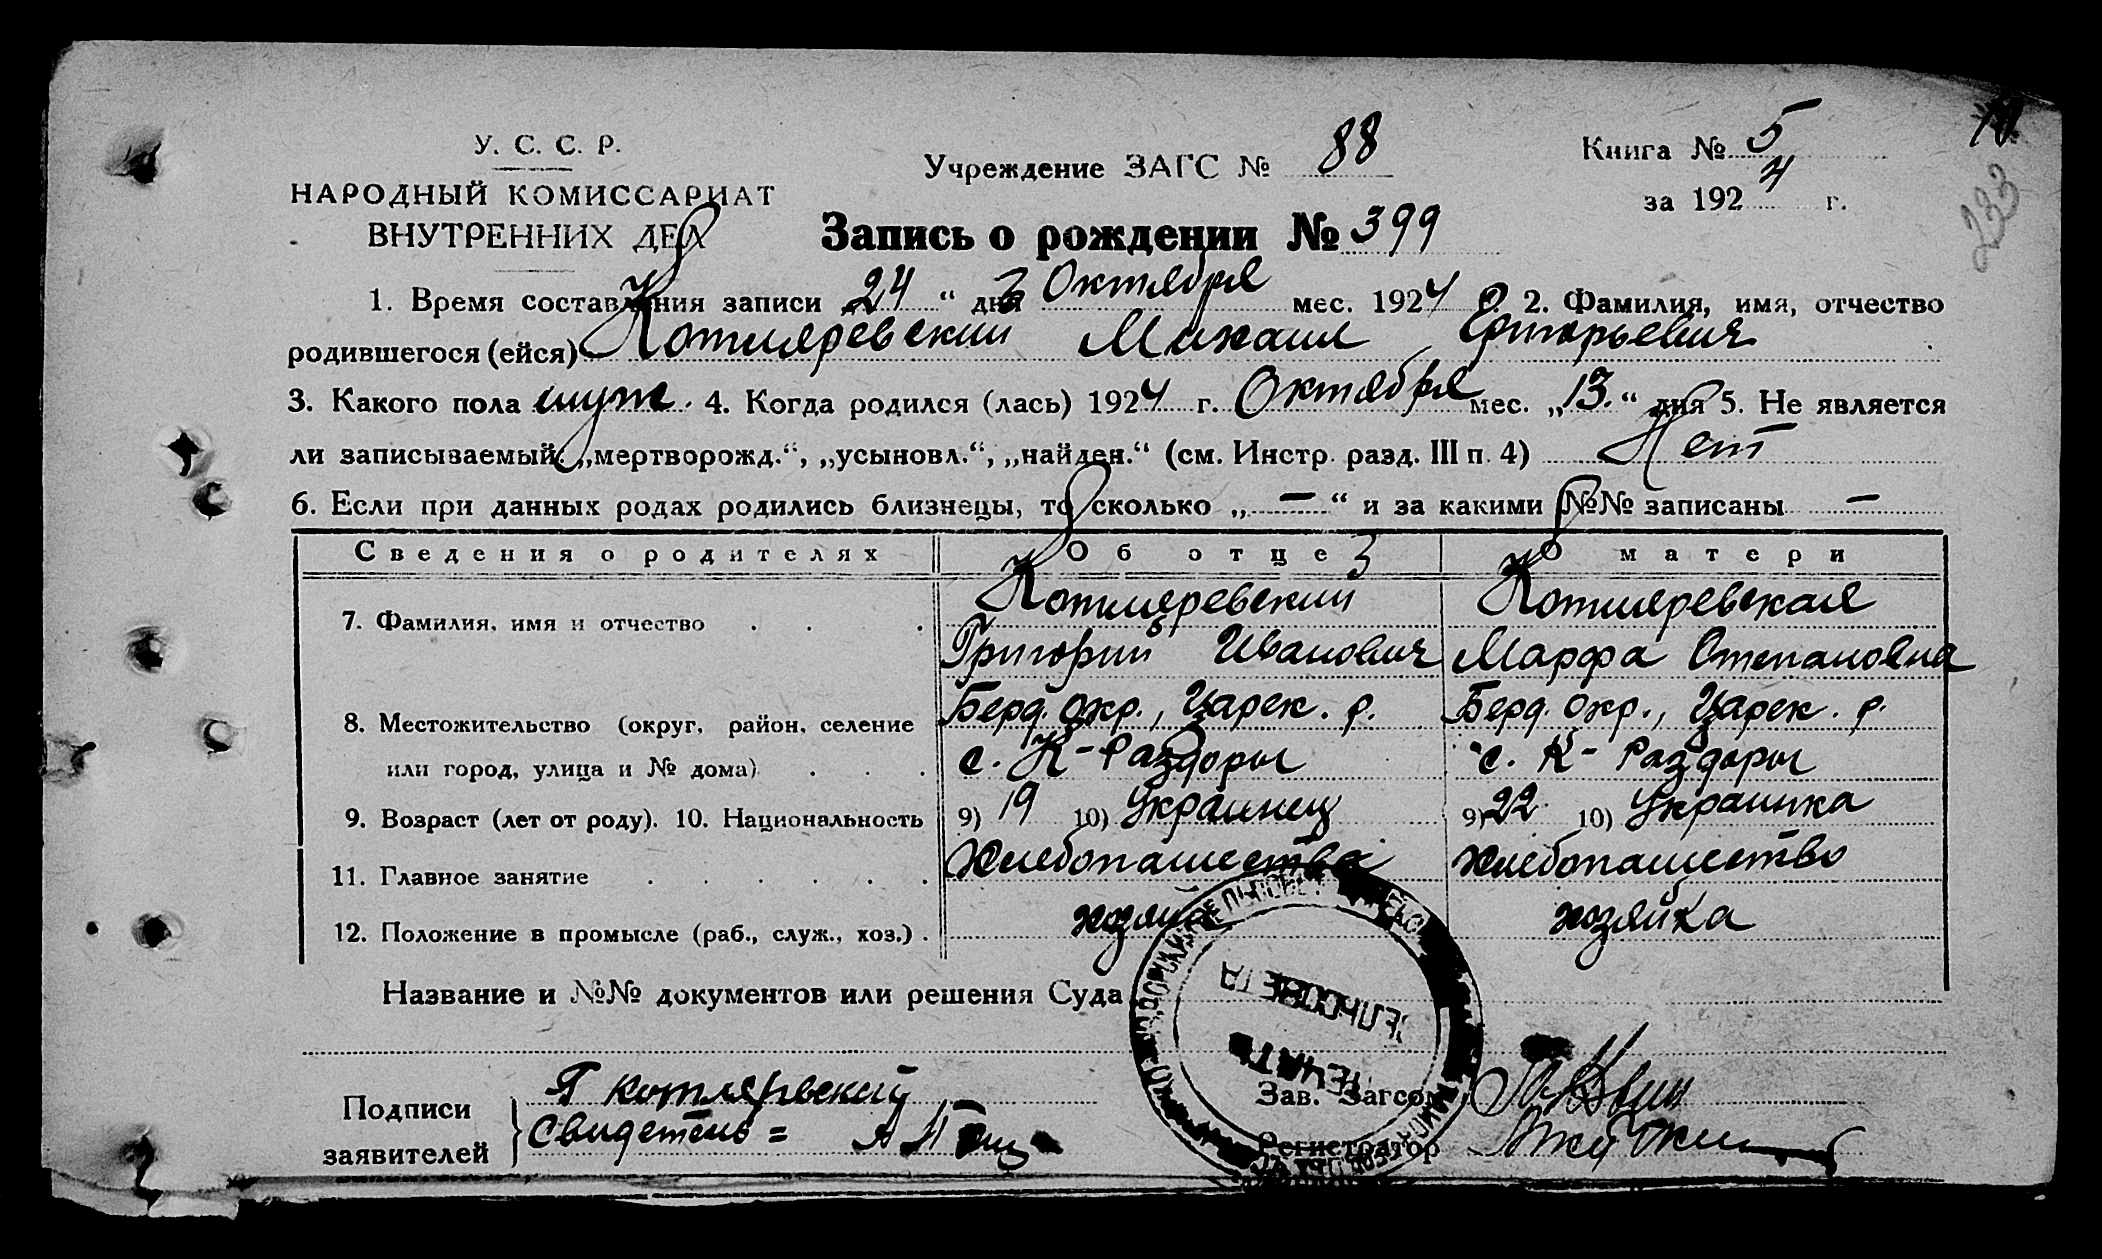 У. С. С. Р.
НАРОДНЫЙ КОМИССАРИАТ
ВНУТРЕННИХ ДЕЛ
Учреждение ЗАГС № 88
Книга № 5
за 1924 г.
10
233
Запись о рождении № 399
1. Время составления записи 24 “ дня Октября мес. 1924 г. 2. Фамилия, имя, отчество
родившегося (ейся) Котляревский Михаил Григорьевич
3. Какого пола муж. 4. Когда родился (лась) 1924 г. Октября мес. „13.“ дня 5. Не является
ли записываемый: „мертворожд.“, „усыновл.“, „найден.“ (см. Инстр. разд. III п. 4) Нет
6. Если при данных родах родились близнецы, то сколько „—“ и за какими №№ записаны —
Сведения о родителях Об отце О матери
7. Фамилия, имя и отчество Котляревский Котляревская
Григорий Иванович Марфа Степановна
8. Местожительство (округ, район, селение Берд. окр., Царек. р. Берд. окр., Царек. р.
или город, улица и № дома) с. К-Раздоры с. К-Раздоры
9. Возраст (лет от роду). 10. Национальность 9) 19 10) Украинец 9) 22 10) Украинка
11. Главное занятие Хлебопашество Хлебопашество
12. Положение в промысле (раб., служ., хоз.) хозяин хозяйка
Название и №№ документов или решения Суда
ПЕЧАТЬ
Подписи
заявителей
Г Котляревский
Свидетель =
Зав. Загсом
Регистратор